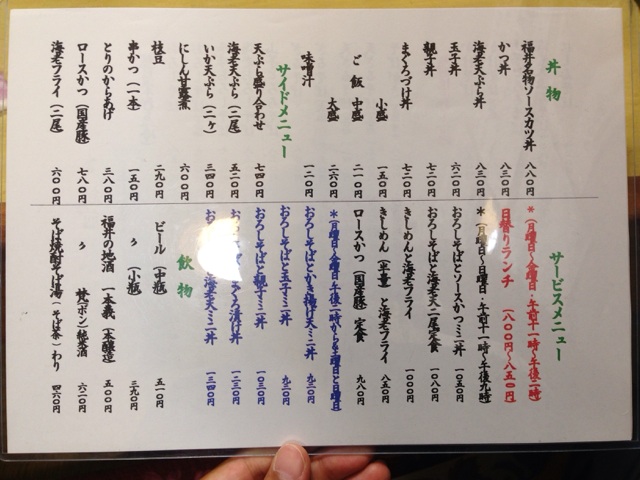 丼物
福井名物ソースカツ丼 八八〇円
かつ丼 八三〇円
海老天ぷら丼 八三〇円
玉子丼 六二〇円
親子丼 七二〇円
まぐろづけ丼 七二〇円
小盛 一五〇円
ご飯 中盛 二一〇円
大盛 二六〇円
味噌汁 一二〇円
サイドメニュー
天ぷら盛り合わせ 七四〇円
海老天ぷら(二尾) 五二〇円
いか天ぷら(二ヶ) 三四〇円
にしん甘露煮 六〇〇円
枝豆 二九〇円
串かつ(一本) 一五〇円
とりのからあげ 三八〇円
ロースかつ(国産豚) 七八〇円
海老フライ(二尾) 六〇〇円
サービスメニュー
*(月曜日〜金曜日・午前十一時〜午後二時)
日替りランチ (八〇〇円〜八五〇円)
*(月曜日〜日曜日・午前十一時〜午後九時)
おろしそばとソースかつミニ丼 一〇五〇円
おろしそばと海老天二尾定食 一〇八〇円
きしめんと海老フライ 一〇〇〇円
きしめん(半量)と海老フライ
ロースかつ(国産豚)定食 九八〇円
*(月曜日〜金曜日・午後二時から・土曜日と日曜日)
おろしそばとかき揚げ天ミニ丼 九三〇円
おろしそばと玉子ミニ丼 九三〇円
おろしそばと親子ミニ丼 一〇三〇円
まぐろ漬け丼 一二三〇円
海老天ミニ丼 一三四〇円
飲物
ビール(中瓶) 五一〇円
〃 (小瓶) 三九〇円
福井の地酒 一本義(本醸造) 五〇〇円
〃 梵(ボン)純米酒 六二〇円
そば焼酎そば湯(そば茶)わり 四六〇円